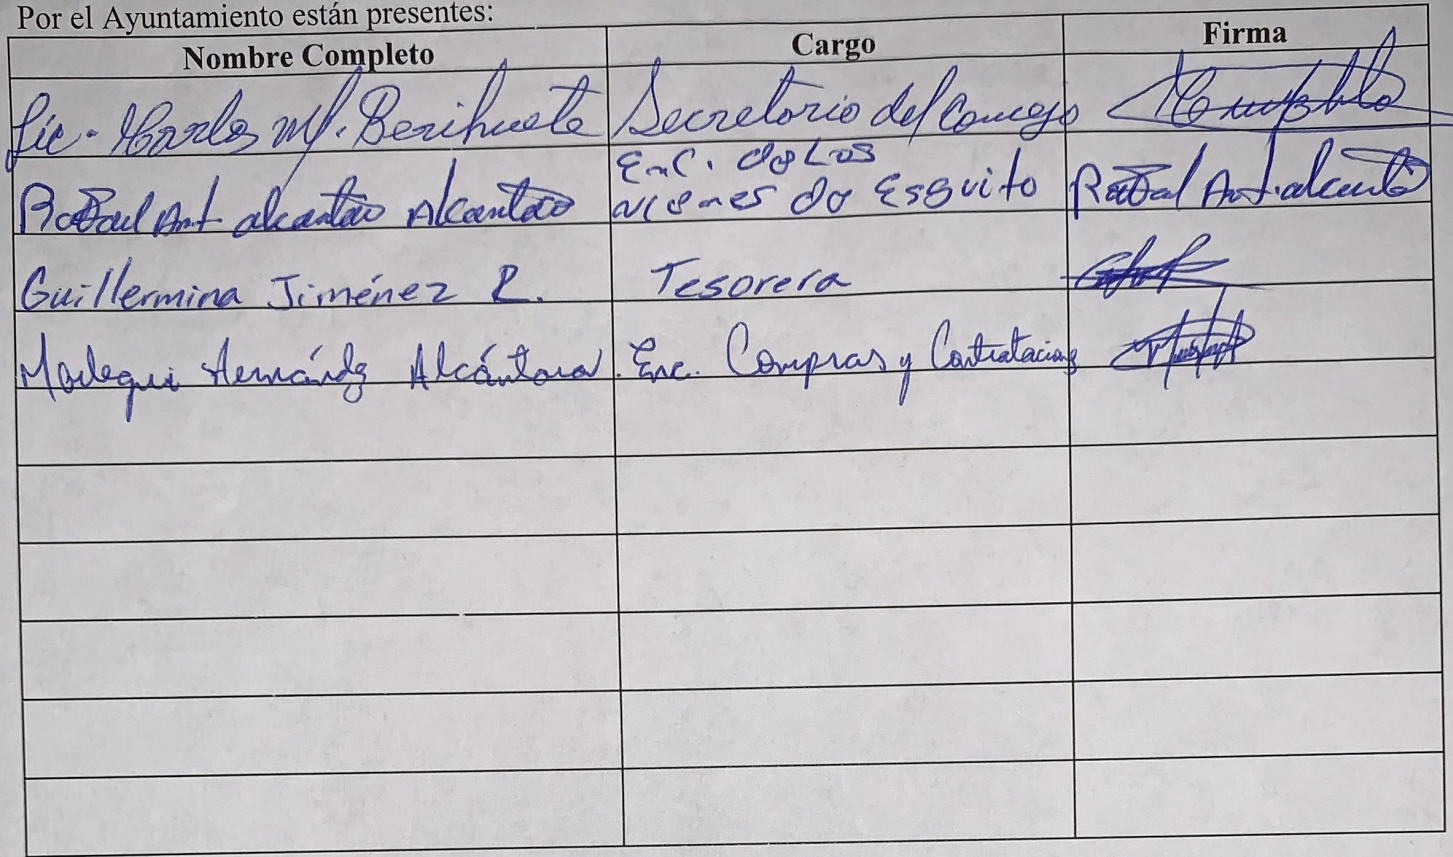 Por el Ayuntamiento están presentes:
Nombre Completo Cargo Firma
Lic. Carlos Ml. Berihuete Secretario del Concejo
Rafael Ant alcantara Alcantara Enc. de Los Rafael Ant. alcanta
de Esquito
Guillermina Jiménez R. Tesorera
Hernández Alcántara Enc. Compras y Contratacione